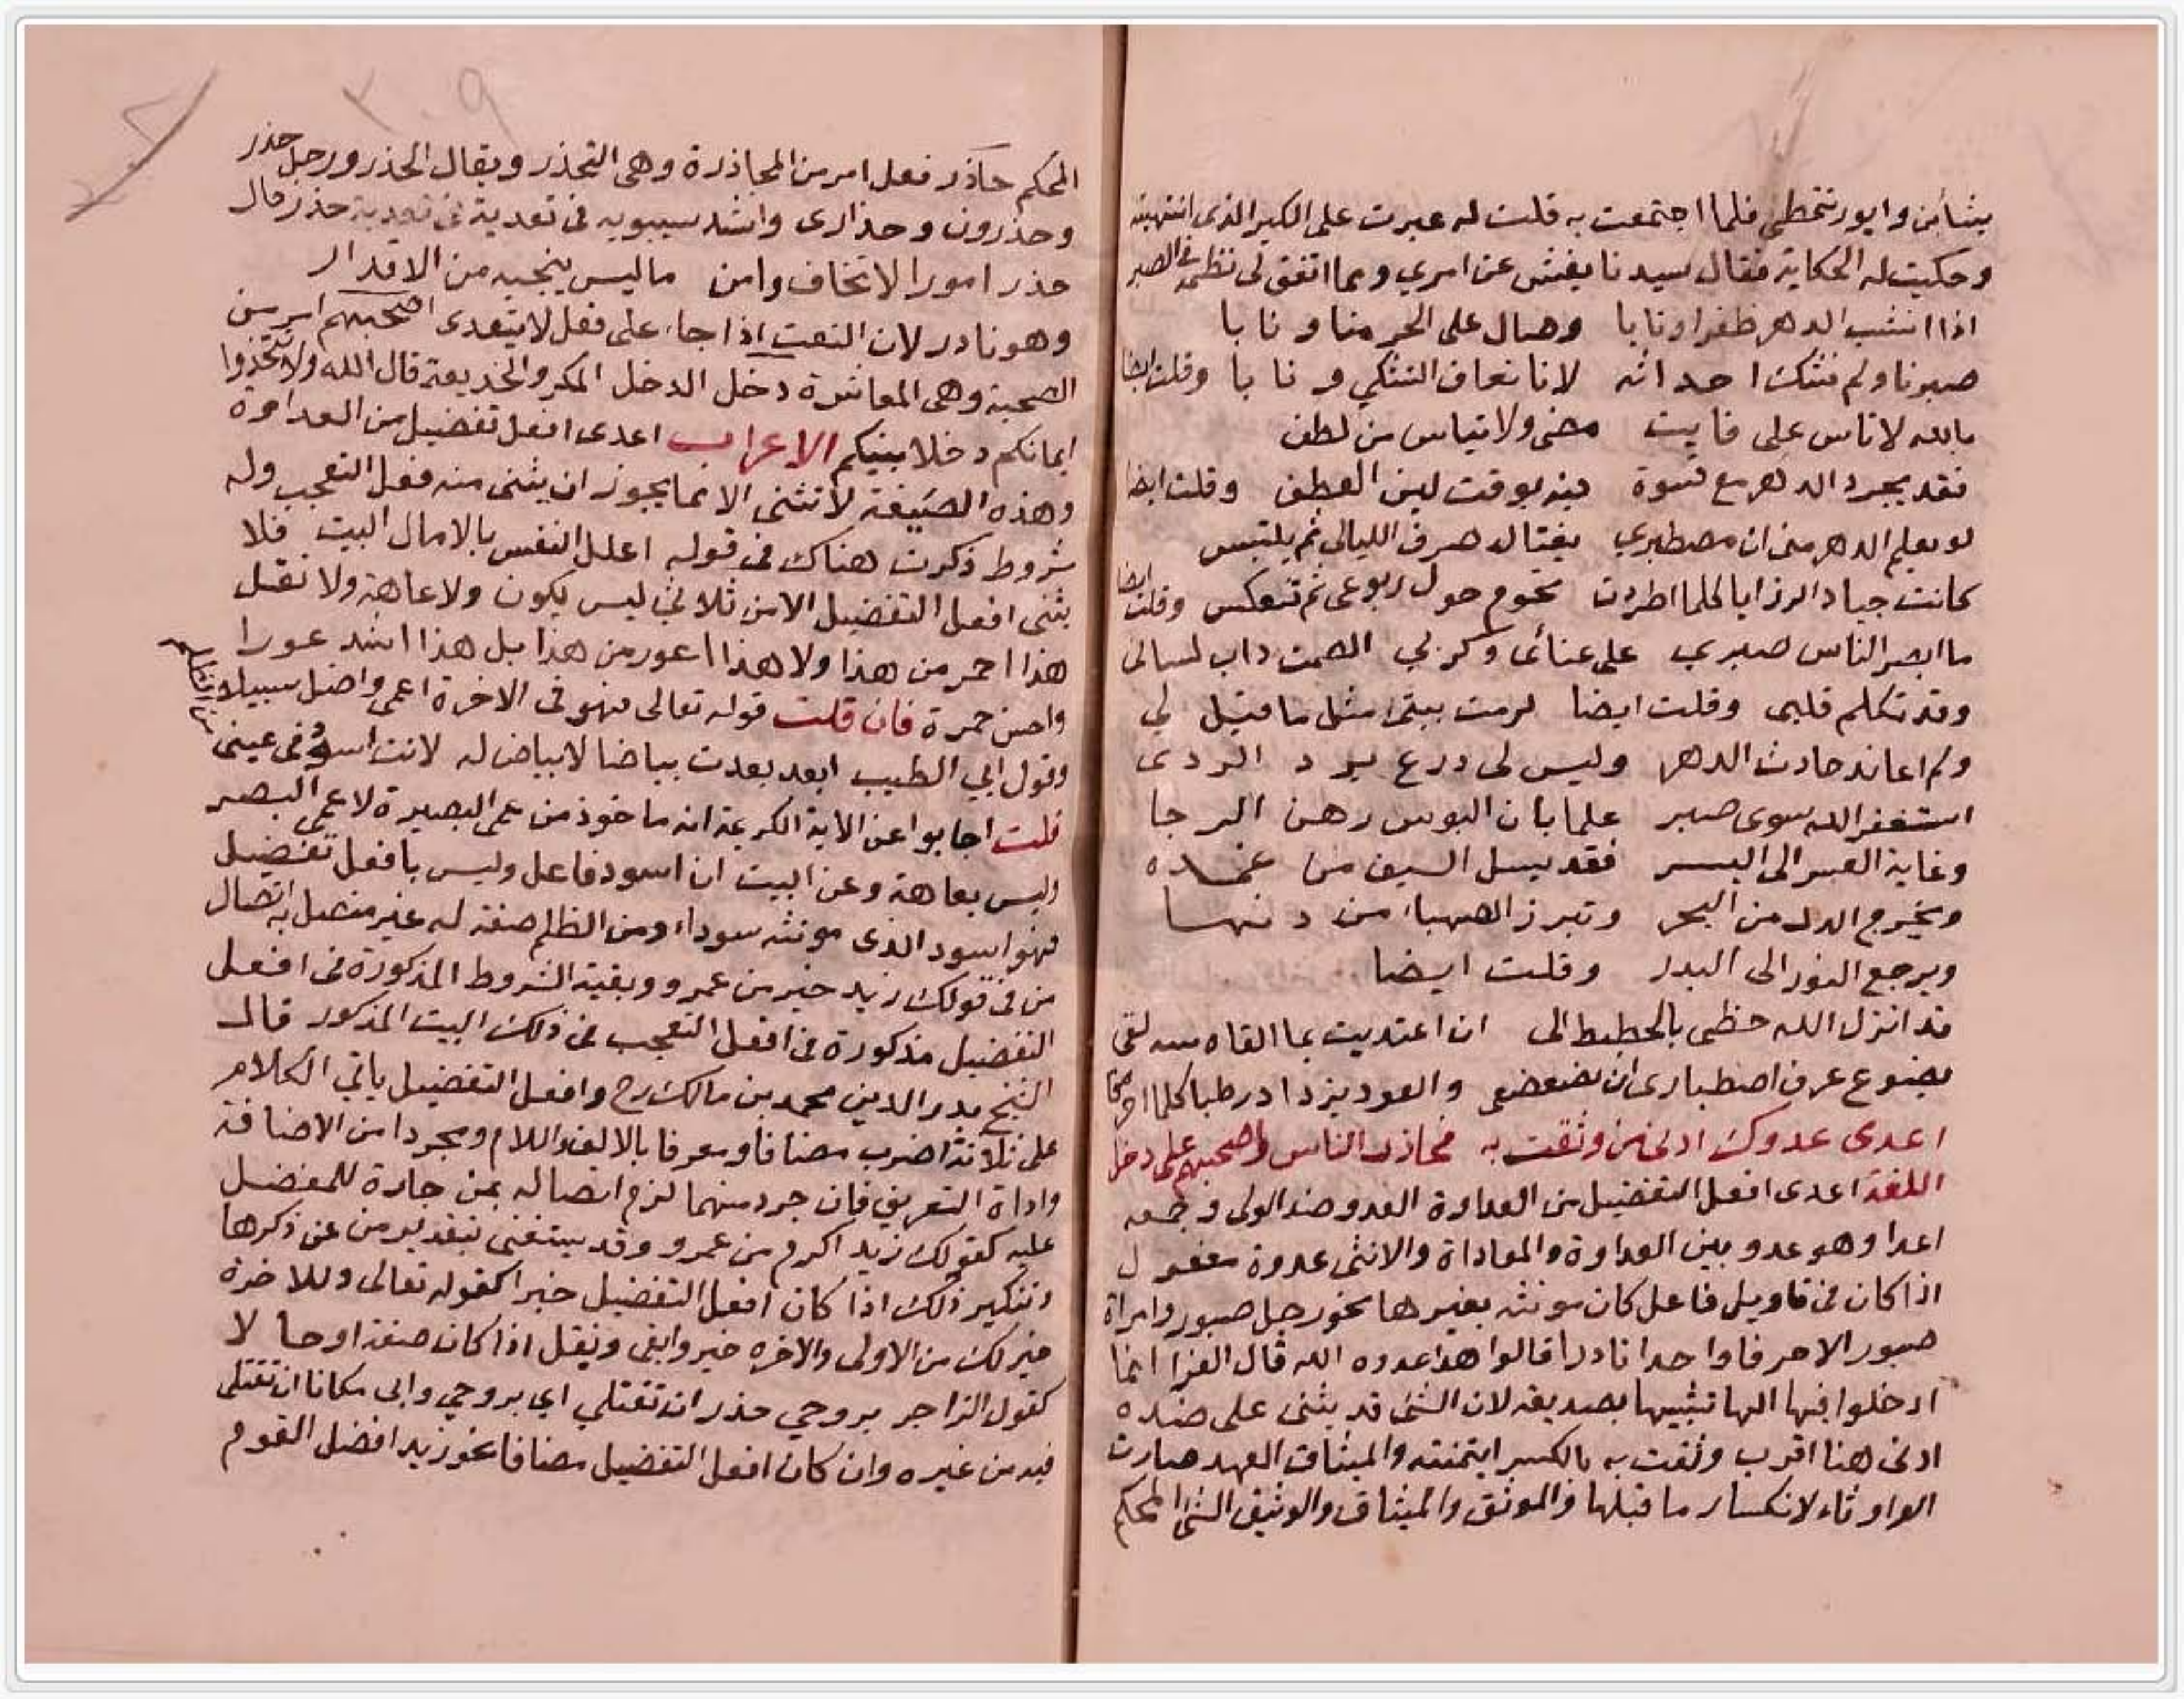 وحكيت له الحكاية فقال سيدنا يفتش عن امري ومما اتفق لي نظمه في الصبر
اذا انشب الدهر ظفرا ونابا وصال على الحر منا ونابا
صبرنا ولم نشك احداثه لانا نعاف التشكي ونابا وقلت ايضا
بالله لا تاس على فايت مضى ولا تياس من لطف
فقد يجرد الدهر مع قسوة فيه بوقت لين العطف وقلت ايضا
لو يعلم الدهر مني ان مصطبري يغتاله صرف الليالي ثم يلتبس
كانت جياد الرزايا كلما اطردت تحوم حول ربوعي ثم تنعكس وقلت ايضا
ما ابصر الناس صبري على عنائى وكربي الصمت داب لسانى
وقد تكلم قلبى وقلت ايضا لزمت بيتى مثل ما قيل لي
ولم اعاند حادث الدهر وليس لى درع يرد الردى
استغفر الله سوى صبر علما بان البوس رهن الرجا
وغاية العسر الى اليسر فقد يسل السيف من غمده
ويخرج الدر من البحر وتبرز الصهباء من دنها
ويرجع النور الى البدر وقلت ايضا
قد انزل الله حظى بالحطيط الى ان اعتديت بما القاه منه لقى
يضوع عرف اصطبارى ان يضعضعى والعود يزداد رطبا كلما احرقا
اعدى عدوك ادنى من وثقت به فحاذر الناس واصحبهم على دخل
اللغة اعدى افعل التفضيل من العداوة العدو ضد الولى وجمعه
اعدا وهو عدو بين العداوة والمعاداة والانثى عدوة مفعول
اذا كان فى تاويل فاعل كان مونثه بغير ها نحو رجل صبور وامراة
صبور الا حرفا واحدا نادرا قالوا هذا عدوه الله قال الفرا انما
ادخلوا فيها الها تشبيها بصديقه لان الشئ قد يثنى على ضده
ادنى هنا اقرب وثقت به بالكسر ايتمنته والميثاق العهد صارت
الواو ثاء لانكسار ما قبلها والموثق والميثاق والوثيق الشئ المحكم
المحكم حاذر فعل امر من المحاذرة وهى التحذر ويقال الحذر ورجل حذر
وحذرون وحذارى وانشد سيبويه فى تعدية فى تعدية حذر قال
حذر امورا لا تخاف وامن ما ليس ينجيه من الاقدار
وهو نادر لان النعت اذا جاء على فعل لا يتعدى اصحبهم امر من
الصحبة وهى المعاشرة دخل الدخل المكر والخديعة قال الله ولا تتخذوا
ايمانكم دخلا بينكم الاعراب اعدى افعل تفضيل من العداوة
وهذه الصيغة لا تثنى الا مما يجوز ان يثنى منه فعل التعجب وله
شروط ذكرت هناك فى قوله اعلل النفس بالامال البيت فلا
يثنى افعل التفضيل الا من ثلاثي ليس بكون ولا عاهة ولا نقل
هذا احمر من هذا ولا هذا اعور من هذا بل هذا اشد عورا
واحسن حمرة فان قلت قوله تعالى فهو فى الاخرة اعمى واضل سبيلا
وقول ابي الطيب ابعد بعدت بياضا لا بياض له لانت اسود فى عينى
من الظلم
قلت اجابوا عن الاية الكريمة انه ماخوذ من عمى البصيرة لا عمى البصر
وليس بعاهة وعن البيت ان اسود فاعل وليس بافعل تفضيل
فهو اسود الذى مونثه سوداء ومن الظلم صفة له غير متصل به اتصال
من فى قولك زيد خير من عمرو وبقية الشروط المذكورة فى افعل
التفضيل مذكورة فى افعل التعجب فى ذلك البيت المذكور قال
الشيخ بدر الدين محمد بن مالك رح وافعل التفضيل ياتي الكلام
على ثلاثة اضرب مضافا ومعرفا بالالف واللام ومجردا من الاضافة
واداة التعريف فان جرد منهما لزم اتصاله بمن جارة للمفضل
عليه كقولك زيد اكرم من عمرو وقد يستغنى بتقدير من عن ذكرها
وتنكير ذلك اذا كان افعل التفضيل خبرا كقوله تعالى وللاخرة
خير لك من الاولى والاخره خير وابقى ويقل اذا كان صفة او حالا
كقول الراجز بروحي حذر ان تقتلي اي بروحي وابى مكانا ان تقتلى
فيه من غيره وان كان افعل التفضيل مضافا نحو زيد افضل القوم